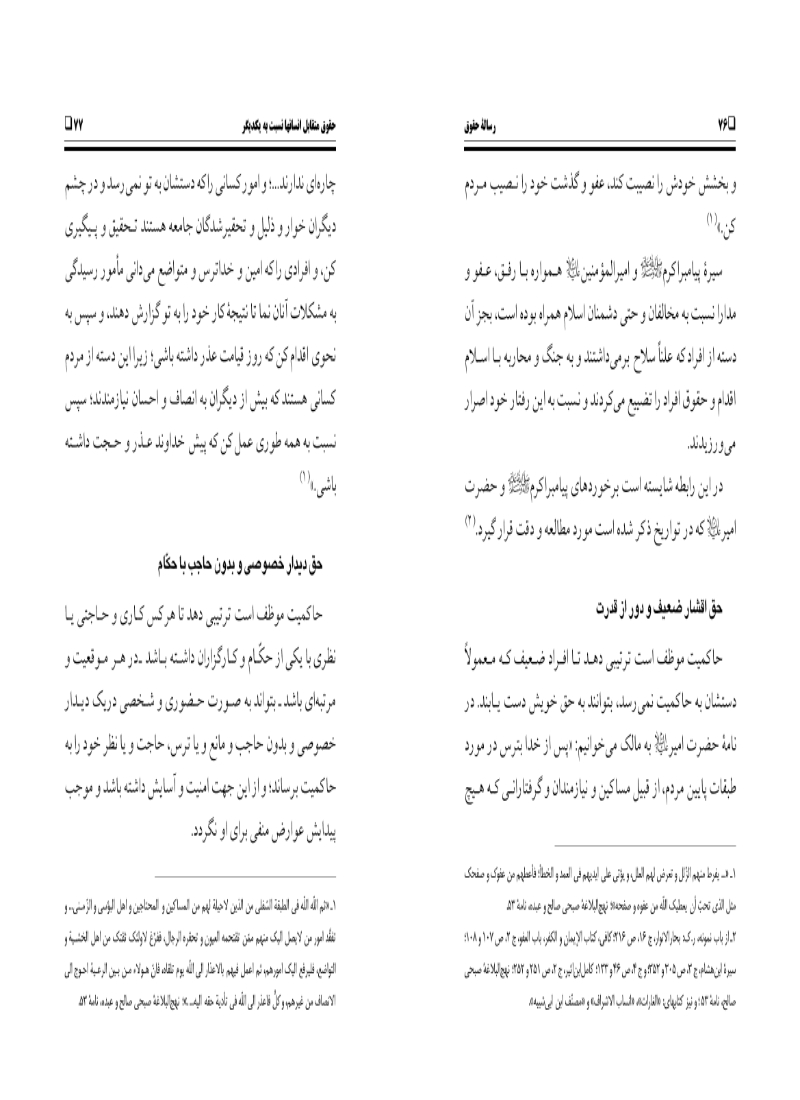 ❑۷۶
رسالهٔ حقوق
و بخشش خودش را نصیبت کند، عفو و گذشت خود را نـصیب مـردم
کن.»(۱)
سیرهٔ پیامبراکرمﷺ و امیرالمؤمنین هـمواره بـا رفـق، عـفو و
مدارا نسبت به مخالفان و حتی دشمنان اسلام همراه بوده است، بجز آن
دسته از افراد که علناً سلاح برمی‌داشتند و به جنگ و محاربه بـا اسـلام
اقدام و حقوق افراد را تضییع می‌کردند و نسبت به این رفتار خود اصرار
می‌ورزیدند.
در این رابطه شایسته است برخوردهای پیامبراکرمﷺ و حضرت
امیر که در تواریخ ذکر شده است مورد مطالعه و دقت قرار گیرد.(۲)
حق اقشار ضعیف و دور از قدرت
حاکمیت موظف است ترتیبی دهـد تـا افـراد ضـعیف کـه مـعمولاً
دستشان به حاکمیت نمی‌رسد، بتوانند به حق خویش دست یـابند. در
نامهٔ حضرت امیر به مالک می‌خوانیم: «پس از خدا بترس در مورد
طبقات پایین مردم، از قبیل مساکین و نیازمندان و گرفتارانـی کـه هـیچ
۱ـ «... یفرط منهم الزّلل و تعرض لهم العلل، و یؤتی علی ایدیهم فی العمد و الخطأ؛ فأعطهم من عفوک و صفحک
مثل الذی تحبّ أن یعطیک اللّه من عفوه و صفحه»؛ نهج‌البلاغهٔ صبحی صالح و عبده، نامهٔ ۵۳.
۲ـ از باب نمونه، ر.ک: بحارالانوار، ج ۱۶، ص ۲۱۶؛ کافی، کتاب الإیمان و الکفر، باب العفو، ج ۲، ص ۱۰۷ و ۱۰۸؛
سیرهٔ ابن‌هشام، ج ۲، ص ۲۰۵ و ۲۵۲؛ و ج ۴، ص ۴۶ و ۱۳۳؛ کامل ابن‌اثیر، ج ۲، ص ۲۵۱ و ۲۵۲؛ نهج‌البلاغهٔ صبحی
صالح، نامهٔ ۵۳؛ و نیز کتابهای: «الغارات»، «انساب الاشراف» و «مصنّف ابن ابی‌شیبه».
حقوق متقابل انسانها نسبت به یکدیگر
۷۷ ❑
چاره‌ای ندارند...؛ و امور کسانی را که دستشان به تو نمی‌رسد و در چشم
دیگران خوار و ذلیل و تحقیرشدگان جامعه هستند تـحقیق و پـیگیری
کن، و افرادی را که امین و خداترس و متواضع می‌دانی مأمور رسیدگی
به مشکلات آنان نما تا نتیجهٔ کار خود را به تو گزارش دهند، و سپس به
نحوی اقدام کن که روز قیامت عذر داشته باشی؛ زیرا این دسته از مردم
کسانی هستند که بیش از دیگران به انصاف و احسان نیازمندند؛ سپس
نسبت به همه طوری عمل کن که پیش خداوند عـذر و حـجت داشـته
باشی.»(۱)
حق دیدار خصوصی و بدون حاجب با حکّام
حاکمیت موظف است ترتیبی دهد تا هر کس کـاری و حـاجتی یـا
نظری با یکی از حکّـام و کـارگزاران داشـته بـاشد ـ در هـر مـوقعیت و
مرتبه‌ای باشد ـ بتواند به صـورت حـضوری و شـخصی در یک دیـدار
خصوصی و بدون حاجب و مانع و یا ترس، حاجت و یا نظر خود را به
حاکمیت برساند؛ و از این جهت امنیت و آسایش داشته باشد و موجب
پیدایش عوارض منفی برای او نگردد.
۱ـ «ثم اللّه اللّه فی الطبقة السّفلی من الذین لاحیلة لهم من المساکین و المحتاجین و اهل البؤسی و الزّمنی... و
تفقّد امور من لایصل الیک منهم ممّن تقتحمه العیون و تحقره الرجال، ففرّغ لاولئک ثقتک من اهل الخشیة و
التواضع، فلیرفع الیک امورهم، ثم اعمل فیهم بالاعذار الی اللّه یوم تلقاه، فانّ هـؤلاء مـن بـین الرعـیة احـوج الی
الانصاف من غیرهم، و کلٌّ فاعذر الی اللّه فی تأدیة حقه الیه...»؛ نهج‌البلاغهٔ صبحی صالح و عبده، نامهٔ ۵۳.